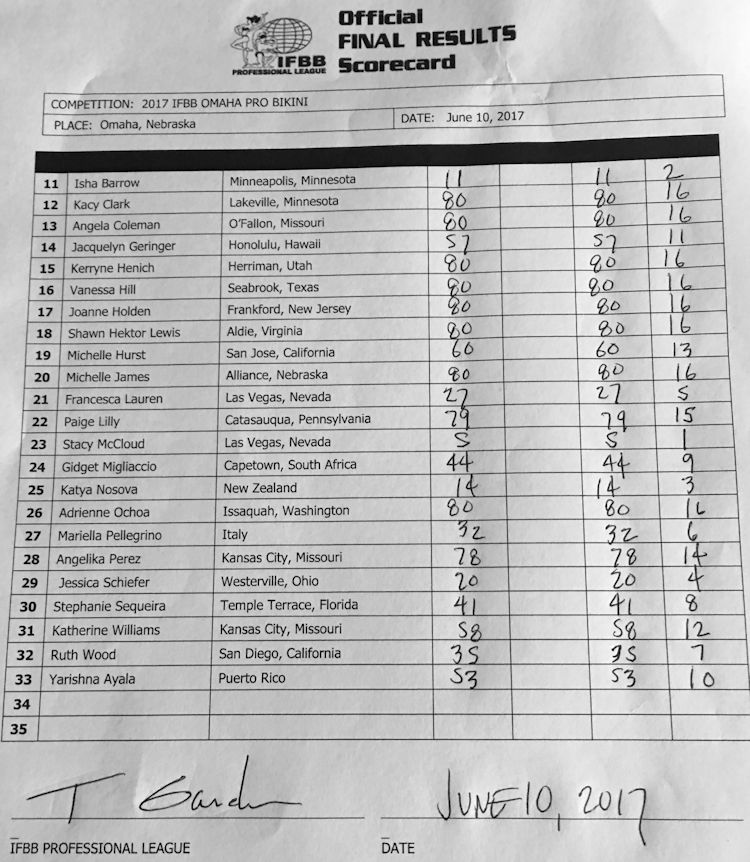 Official
FINAL RESULTS
IFBB
PROFESSIONAL LEAGUE
Scorecard
COMPETITION: 2017 IFBB OMAHA PRO BIKINI
PLACE: Omaha, Nebraska DATE: June 10, 2017
11 Isha Barrow Minneapolis, Minnesota 11 11 2
12 Kacy Clark Lakeville, Minnesota 80 80 16
13 Angela Coleman O'Fallon, Missouri 80 80 16
14 Jacquelyn Geringer Honolulu, Hawaii 57 57 11
15 Kerryne Henich Herriman, Utah 80 80 16
16 Vanessa Hill Seabrook, Texas 80 80 16
17 Joanne Holden Frankford, New Jersey 80 80 16
18 Shawn Hektor Lewis Aldie, Virginia 80 80 16
19 Michelle Hurst San Jose, California 60 60 13
20 Michelle James Alliance, Nebraska 80 80 16
21 Francesca Lauren Las Vegas, Nevada 27 27 5
22 Paige Lilly Catasauqua, Pennsylvania 79 79 15
23 Stacy McCloud Las Vegas, Nevada 5 5 1
24 Gidget Migliaccio Capetown, South Africa 44 44 9
25 Katya Nosova New Zealand 14 14 3
26 Adrienne Ochoa Issaquah, Washington 80 80 16
27 Mariella Pellegrino Italy 32 32 6
28 Angelika Perez Kansas City, Missouri 78 78 14
29 Jessica Schiefer Westerville, Ohio 20 20 4
30 Stephanie Sequeira Temple Terrace, Florida 41 41 8
31 Katherine Williams Kansas City, Missouri 58 58 12
32 Ruth Wood San Diego, California 35 35 7
33 Yarishna Ayala Puerto Rico 53 53 10
34
35
T JUNE 10, 2017
IFBB PROFESSIONAL LEAGUE DATE